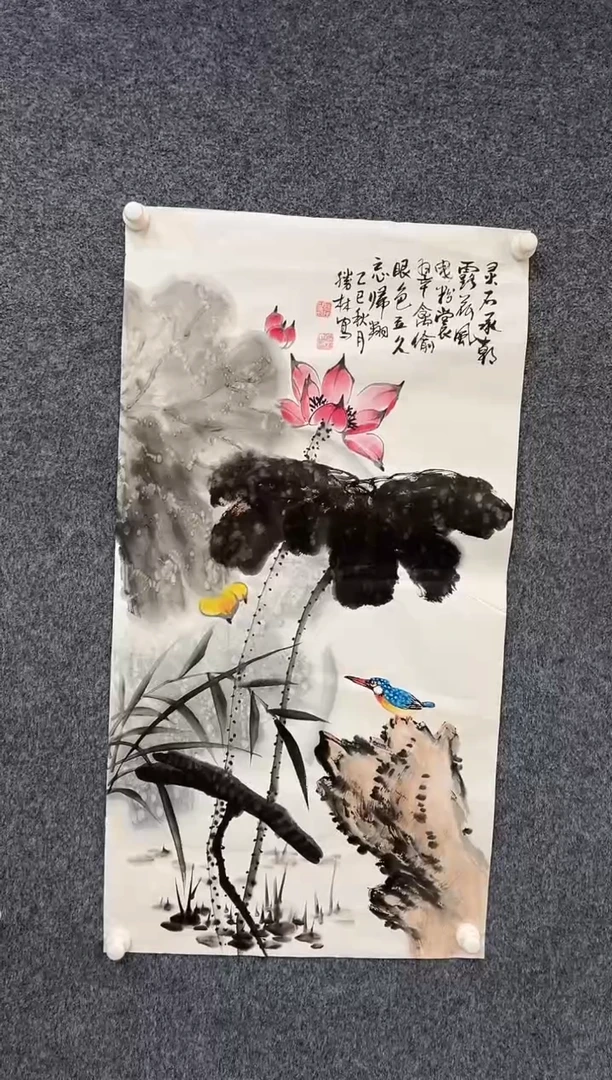 灵石承朝
露荷风
曳粉裳
翠禽偷
眼色立久
忘归翔
乙巳秋月
胜林写